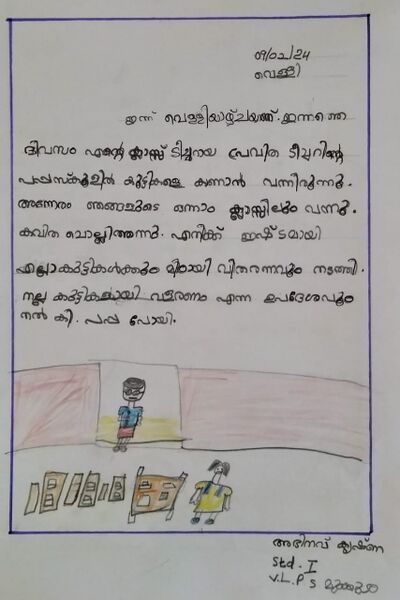 09/02/24
വെള്ളി
ഇന്ന് വെള്ളിയാഴ്ചയണ്. ഇന്നത്തെ
ദിവസം എന്റെ ക്ലാസ്സ് ടീച്ചറായ പ്രവിത ടീച്ചറിന്റെ
പപ്പസ്കൂളിൽ കുട്ടികളെ കണാൻ വന്നിരുന്നു.
അന്നേരം ഞങ്ങളുടെ ഒന്നാം ക്ലാസ്സിലും വന്നു.
കവിത ചൊല്ലിത്തന്നു. എനിക്ക് ഇഷ്ടമായി
എല്ലാകുട്ടികൾക്കും മിഠായി വിതരണവും നടത്തി.
നല്ല കുട്ടികളായി വളരണം എന്ന ഉപദേശവും
നൽകി. പപ്പ പോയി.
അഭിനവ് കൃഷ്ണ
Std. I
V.L.P S